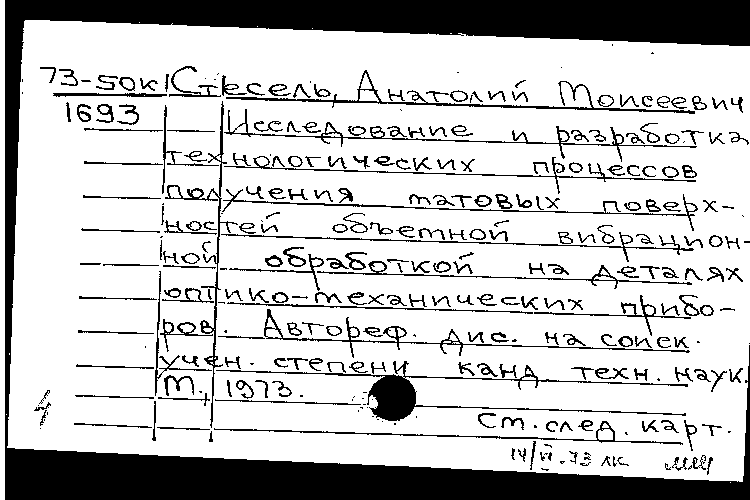 73-50к Стесель, Анатолий Моисеевич
1693 Исследование и разработка
технологических процессов
получения матовых поверх-
ностей объемной вибрацион-
ной обработкой на деталях
оптико-механических прибо-
ров. Автореф. дис. на соиск.
учен. степени канд. техн. наук.
М., 1973.
См. след. карт.
14/VI.73 лк